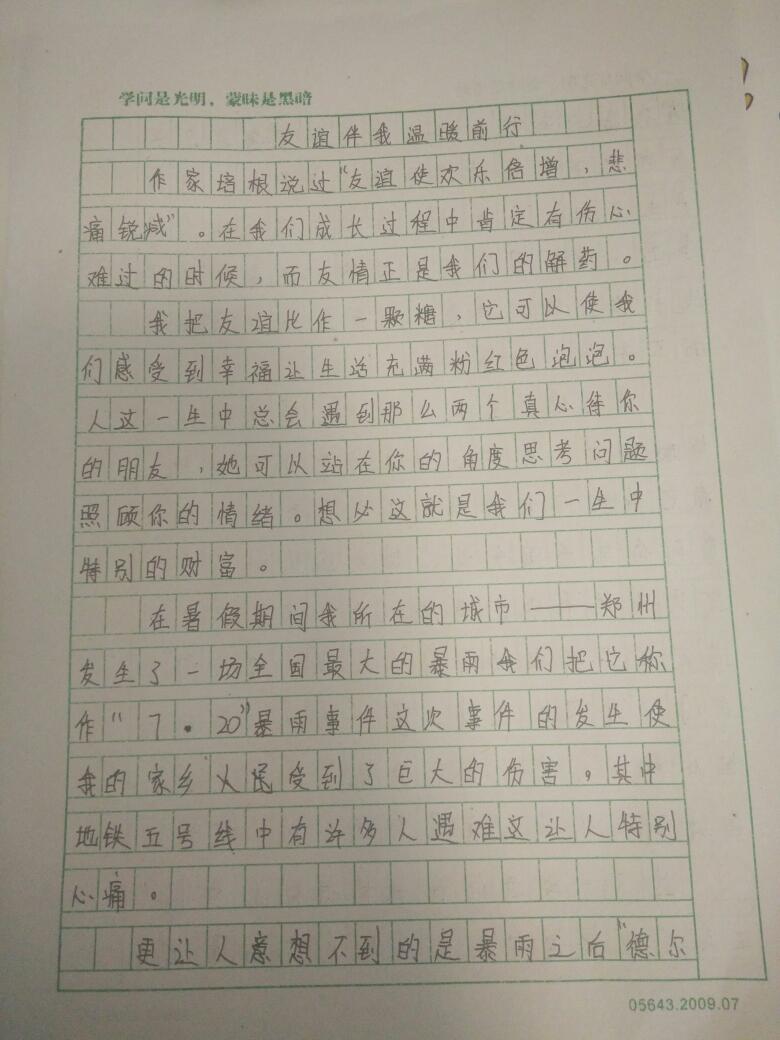 学问是光明，蒙昧是黑暗
友谊伴我温暖前行
作家培根说过“友谊使欢乐倍增，悲
痛锐减”。在我们成长过程中肯定有伤心
难过的时候，而友情正是我们的解药。
我把友谊比作一颗糖，它可以使我
们感受到幸福让生活充满粉红色泡泡。
人这一生中总会遇到那么两个真心待你
的朋友，她可以站在你的角度思考问题
照顾你的情绪。想必这就是我们一生中
特别的财富。
在暑假期间我所在的城市——郑州
发生了一场全国最大的暴雨我们把它称
作“7·20”暴雨事件这次事件的发生使
我的家乡人民受到了巨大的伤害，其中
地铁五号线中有许多人遇难这让人特别
心痛。
更让人意想不到的是暴雨之后“德尔
05643.2009.07